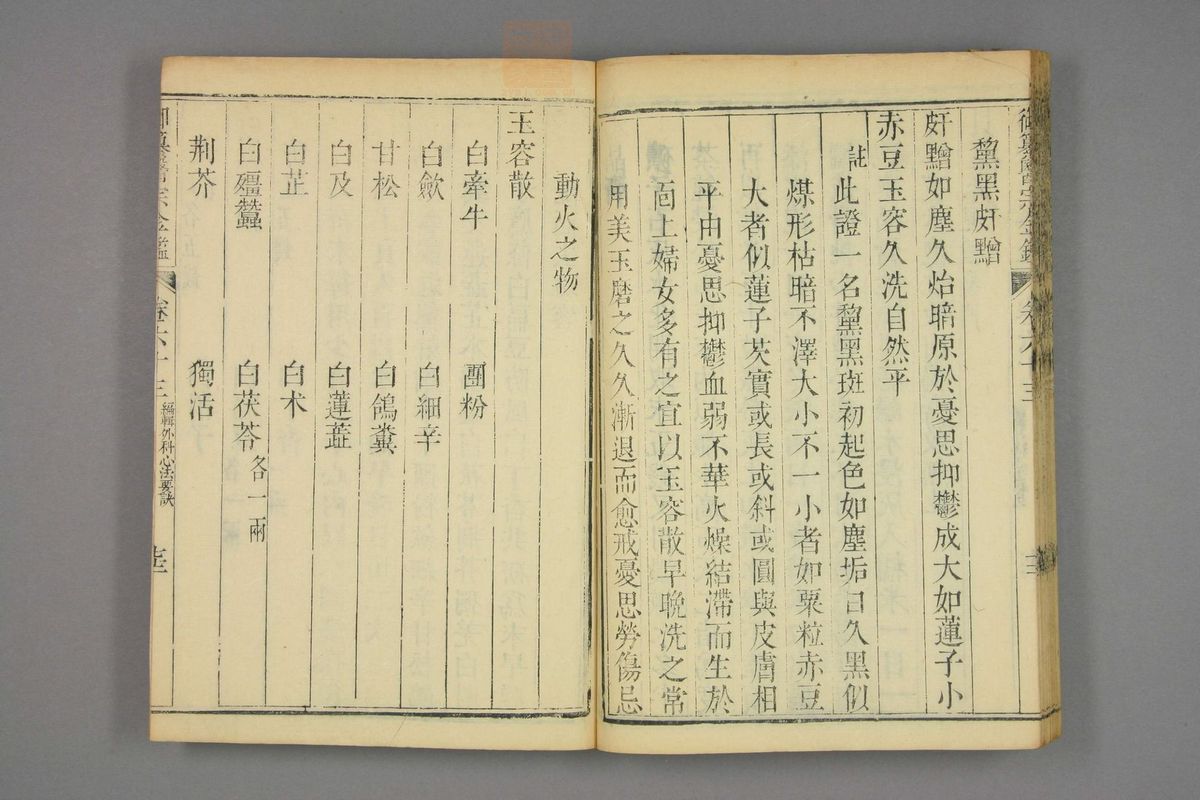 御纂醫宗金鑑 卷六十三
黧黑皯䵴
皯䵴如塵久炲暗原於憂思抑鬱成大如蓮子小
赤豆玉容久洗自然平
註此證一名黧黑斑初起色如塵垢日久黑似
煤形枯暗不澤大小不一小者如粟粒赤豆
大者似蓮子芡實或長或斜或圓與皮膚相
平由憂思抑鬱血弱不華火燥結滯而生於
面上婦女多有之宜以玉容散早晚洗之常
用美玉磨之久久漸退而愈戒憂思勞傷忌
動火之物
玉容散
白牽牛 團粉
白歛 白細辛
甘松 白鴿糞
白及 白蓮蘂
白芷 白朮
白殭蠶 白茯苓各一兩
荆芥 獨活
御纂醫宗金鑑 卷六十三 編輯外科心法要訣